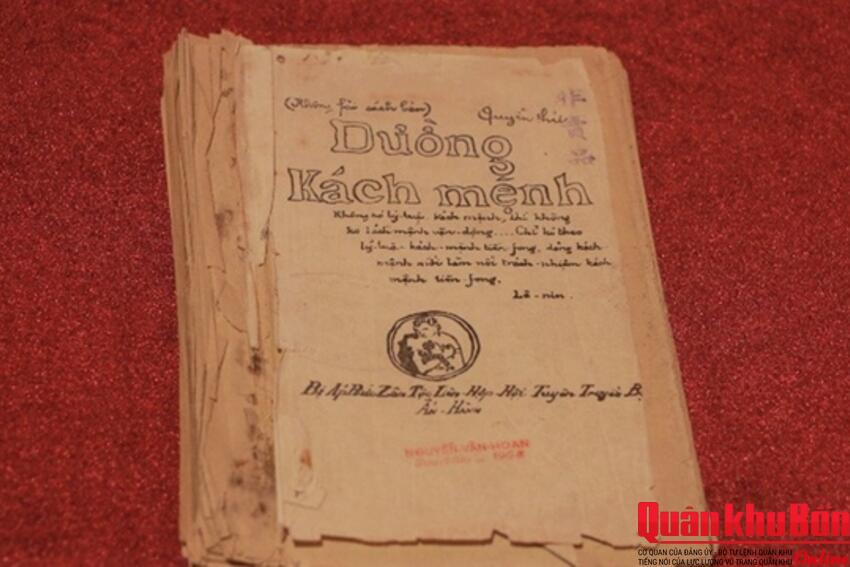 (Không fải sách bán)
Quyển thứ
非賣品
Đường
Kách mệnh
Không có lý luận kách mệnh, thì không
có kách mệnh vận-động.... Chỉ có theo
lý luận kách-mệnh tiền fong, đảng kách-
mệnh mới làm nổi trách-nhiệm kách
mệnh tiền-fong.
Lê-nin.
Bị Áp Bức Zân Tộc Liên Hợp Hội Tuyên Truyền Bộ
Ấn-Hành
NGUYỄN-VĂN-HOAN
1968
Quân khu Bốn
Online
CƠ QUAN CỦA ĐẢNG ỦY - BỘ TƯ LỆNH QUÂN KHU
TIẾNG NÓI CỦA LỰC LƯỢNG VŨ TRANG QUÂN KHU